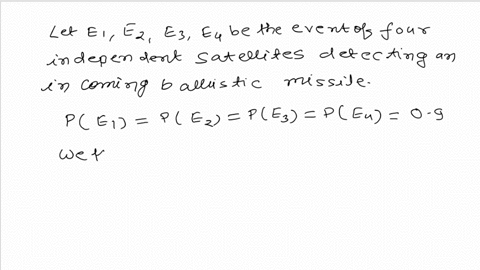 Let E1, E2, E3, E4 be the event of four
independent satellites detecting an
in coming ballistic missile.
P(E1) = P(E2) = P(E3) = P(E4) = 0.9